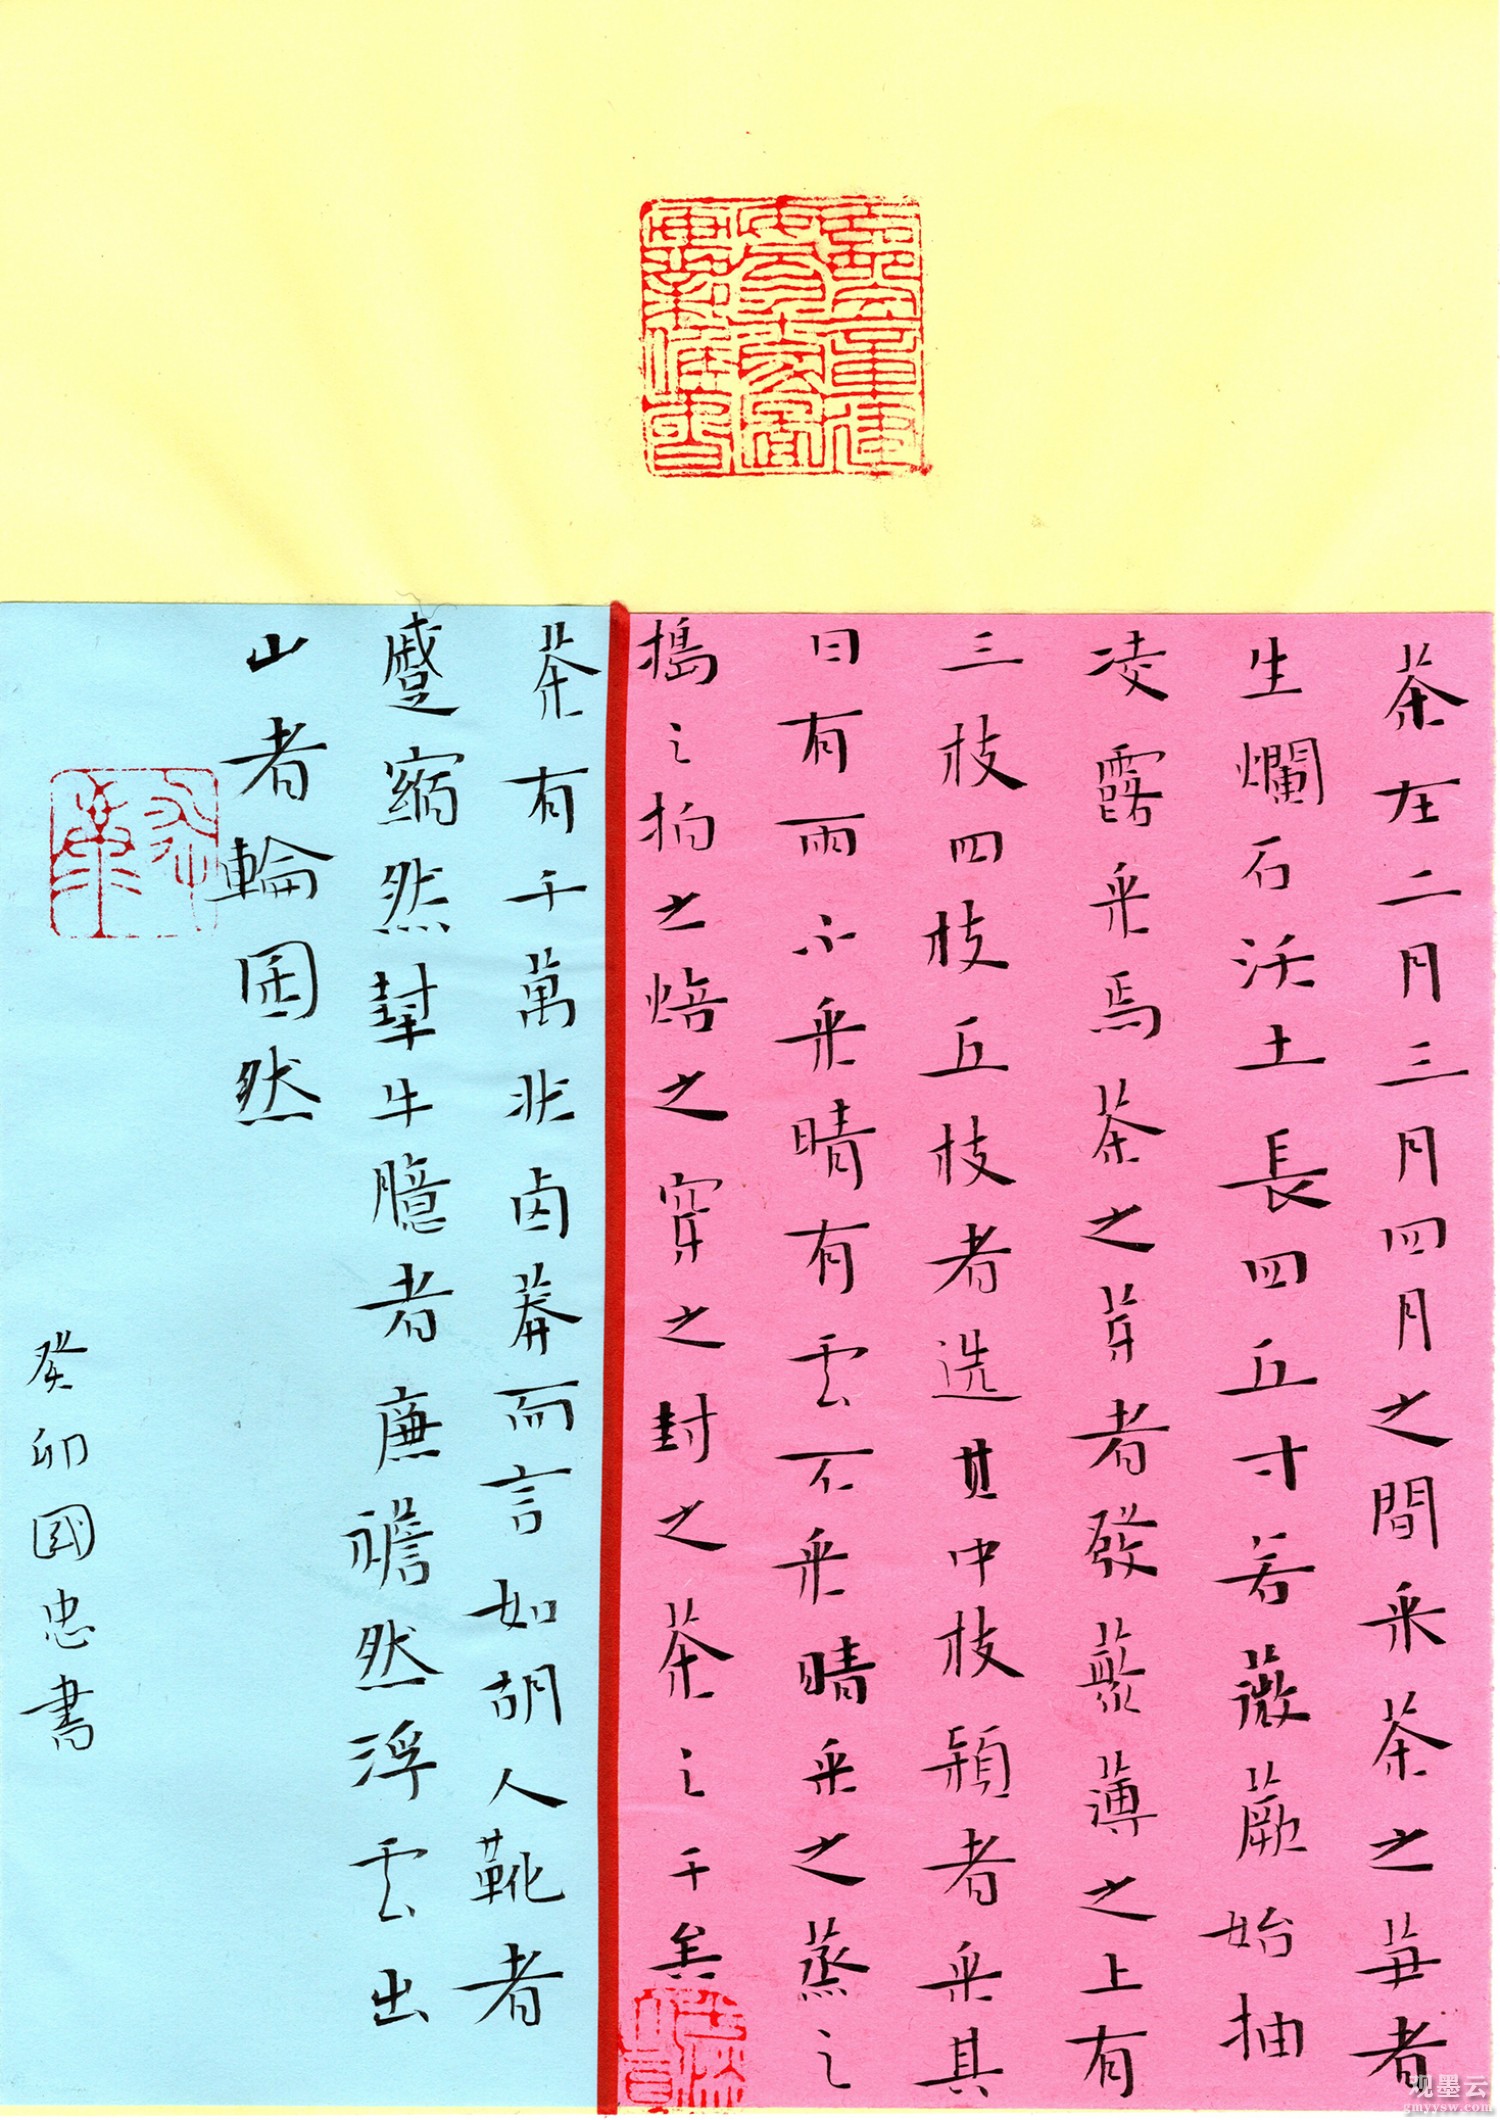 茶在二月三月四月之間采茶之笋者
生爛石沃土長四五寸若薇蕨始抽
凌露采焉茶之芽者發藂薄之上有
三枝四枝五枝者选其中枝穎者采其
日有雨不采晴有雲不采晴采之蒸之
搗之拍之焙之穿之封之茶之千矣
茶有千萬狀卤莽而言如胡人靴者
蹙縮然犎牛臆者廉襜然浮雲出
山者輪囷然
癸卯國忠書
观墨云
gmyysw.com